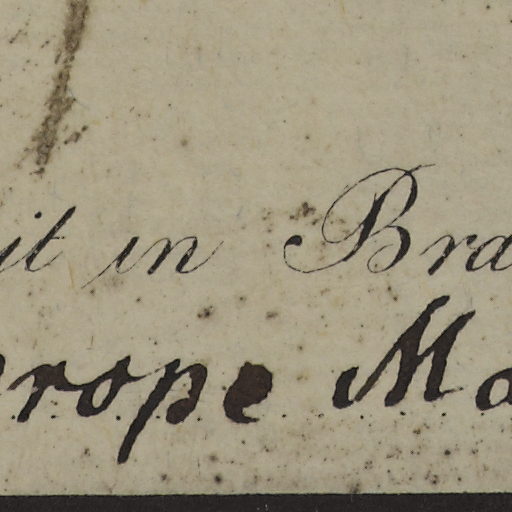 it in Bra
rope Ma